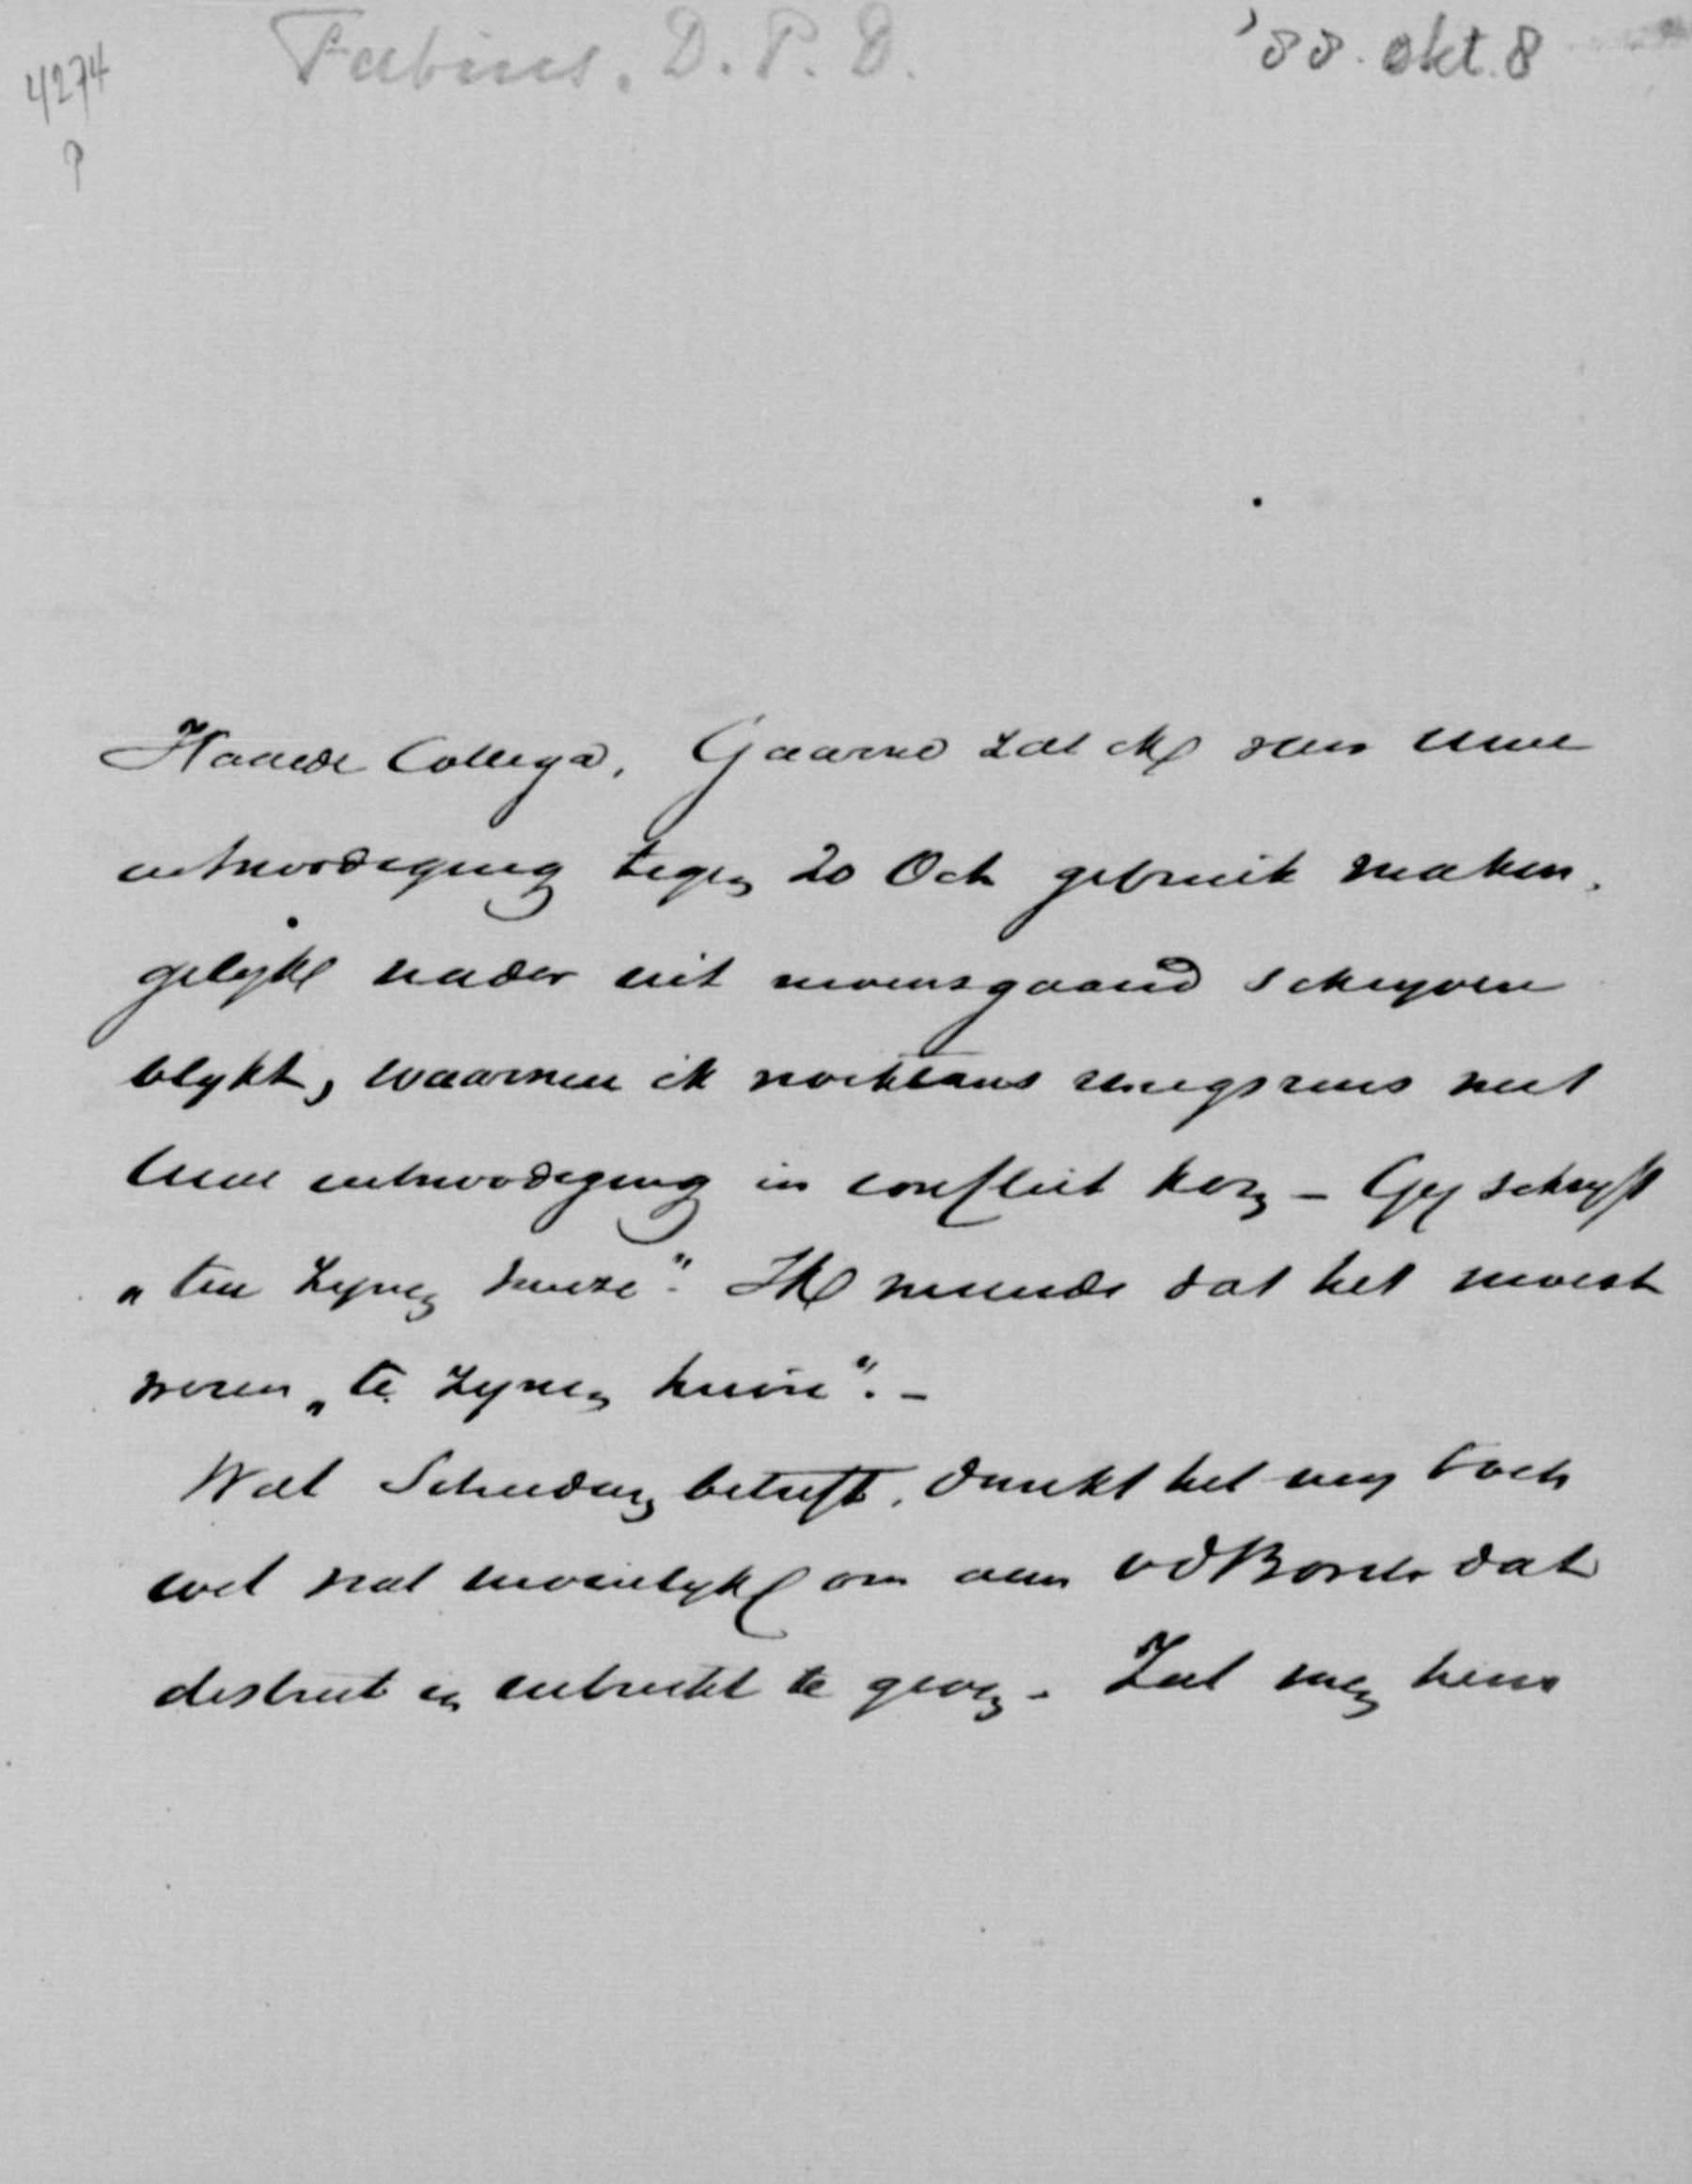 4274
Fabius. D. P. D.
'88. okt. 8
Waarde Collega, Gaarne zal ik van Uwe
uitnoodiging tegen 20 Oct gebruik maken,
gelijk nader uit nevensgaand schrijven
blijkt, waarmee ik nochtans eenigszins met
Uwe uitnoodiging in conflict kom – Gij schrijft
„ten zijnen huize". Ik meende dat het moest
wezen „te zijnen huize". –
Wat Schiedam betreft, dunkt het mij toch
wel wat moeielijk om aan vd Borch dat
district in uitzicht te geven – Zal men hem